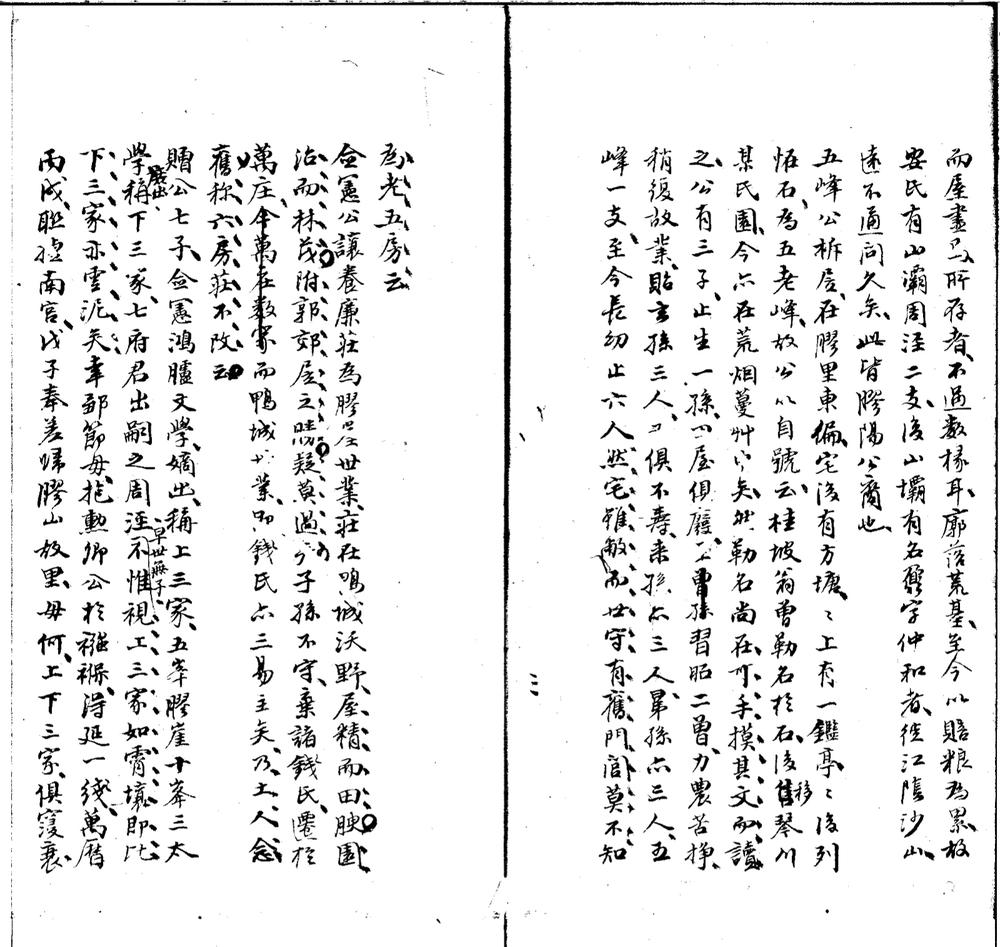 而屋盡矣所存者不過数椽耳廓落荒基至今以賠粮為累故
安氏有山灞周涇二支後山壩有名字仲和者徙江陰沙山
遠不通问久矣此皆膠陽公裔也
五峰公柝居在膠里東偏宅後有方塘〻上有一鑑亭〻後列
怪石為五老峰故公以自號云桂坡翁曽勒名於石後移琴川
某氏園今亦在荒烟蔓艸中矣然勒名尚在可手摸其文而讀
之公有三子止生一孫四屋俱廢二曽孫習昭二曽力農苦掙
稍復故業貽玄孫三人俱不壽来孫亦三人㫒孫亦三人五
峰一支至今長幼止六人然宅雖敝而世守有舊門閭莫不知
為老五房云
僉憲公讓養廉莊為膠尽世業莊在鳴城沃野屋精而田腴園
沼而林茂附郭郊居之勝疑莫過子孫不守棄諸錢氏遷於
萬庄今萬在数家而鴨城業錢氏亦三易主矣乃土人念
舊称六房莊不改云
贈公七子僉憲鴻臚文學嫡出稱上三家五峯膠崖十峯三太
學庶出稱下三家七府君出嗣之周涇早世無子不惟視上三家如霄壤即比
下三家亦雲泥矣幸郅節母抱勳卿公於襁褓得延一綫萬曆
丙戌聯捷南宫戊子奉差歸膠山故里毋何上下三家俱寖衰